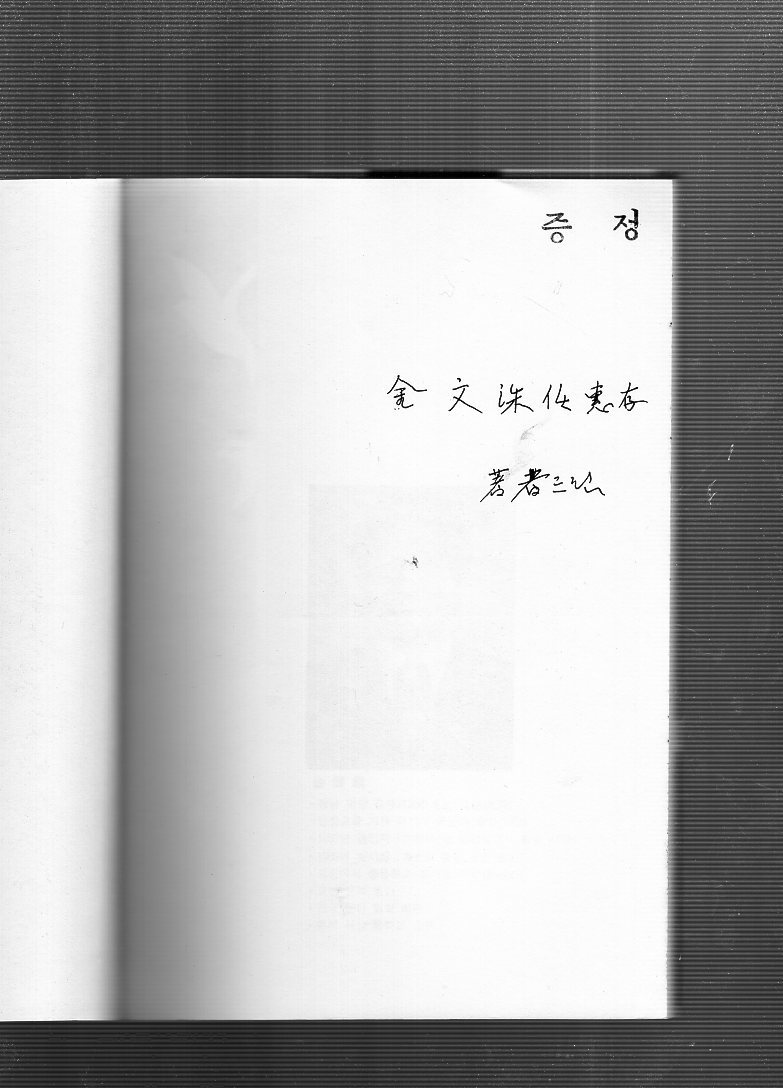 증 정
金 文 洙 任 惠存
著者 드림